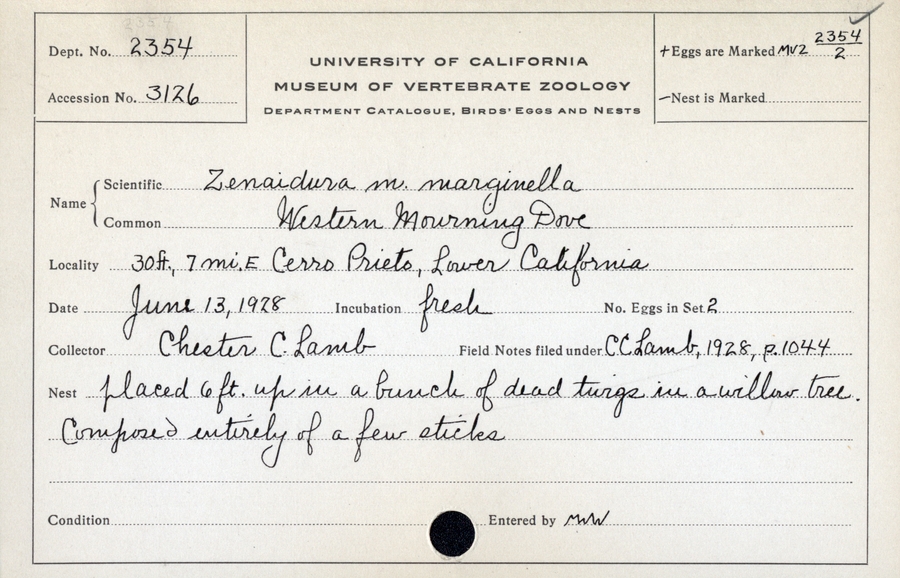 Dept. No. 2354
Accession No. 3126
UNIVERSITY OF CALIFORNIA
MUSEUM OF VERTEBRATE ZOOLOGY
DEPARTMENT CATALOGUE, BIRDS' EGGS AND NESTS
+Eggs are Marked MVZ 2354/2
–Nest is Marked
Name
Scientific Zenaidura m. marginella
Common Western Mourning Dove
Locality 30ft., 7 mi. E Cerro Prieto, Lower California
Date June 13, 1928 Incubation fresh No. Eggs in Set 2
Collector Chester C. Lamb Field Notes filed under CCLamb, 1928, p.1044
Nest placed 6 ft. up in a bunch of dead twigs in a willow tree.
Composed entirely of a few sticks
Condition Entered by MWW